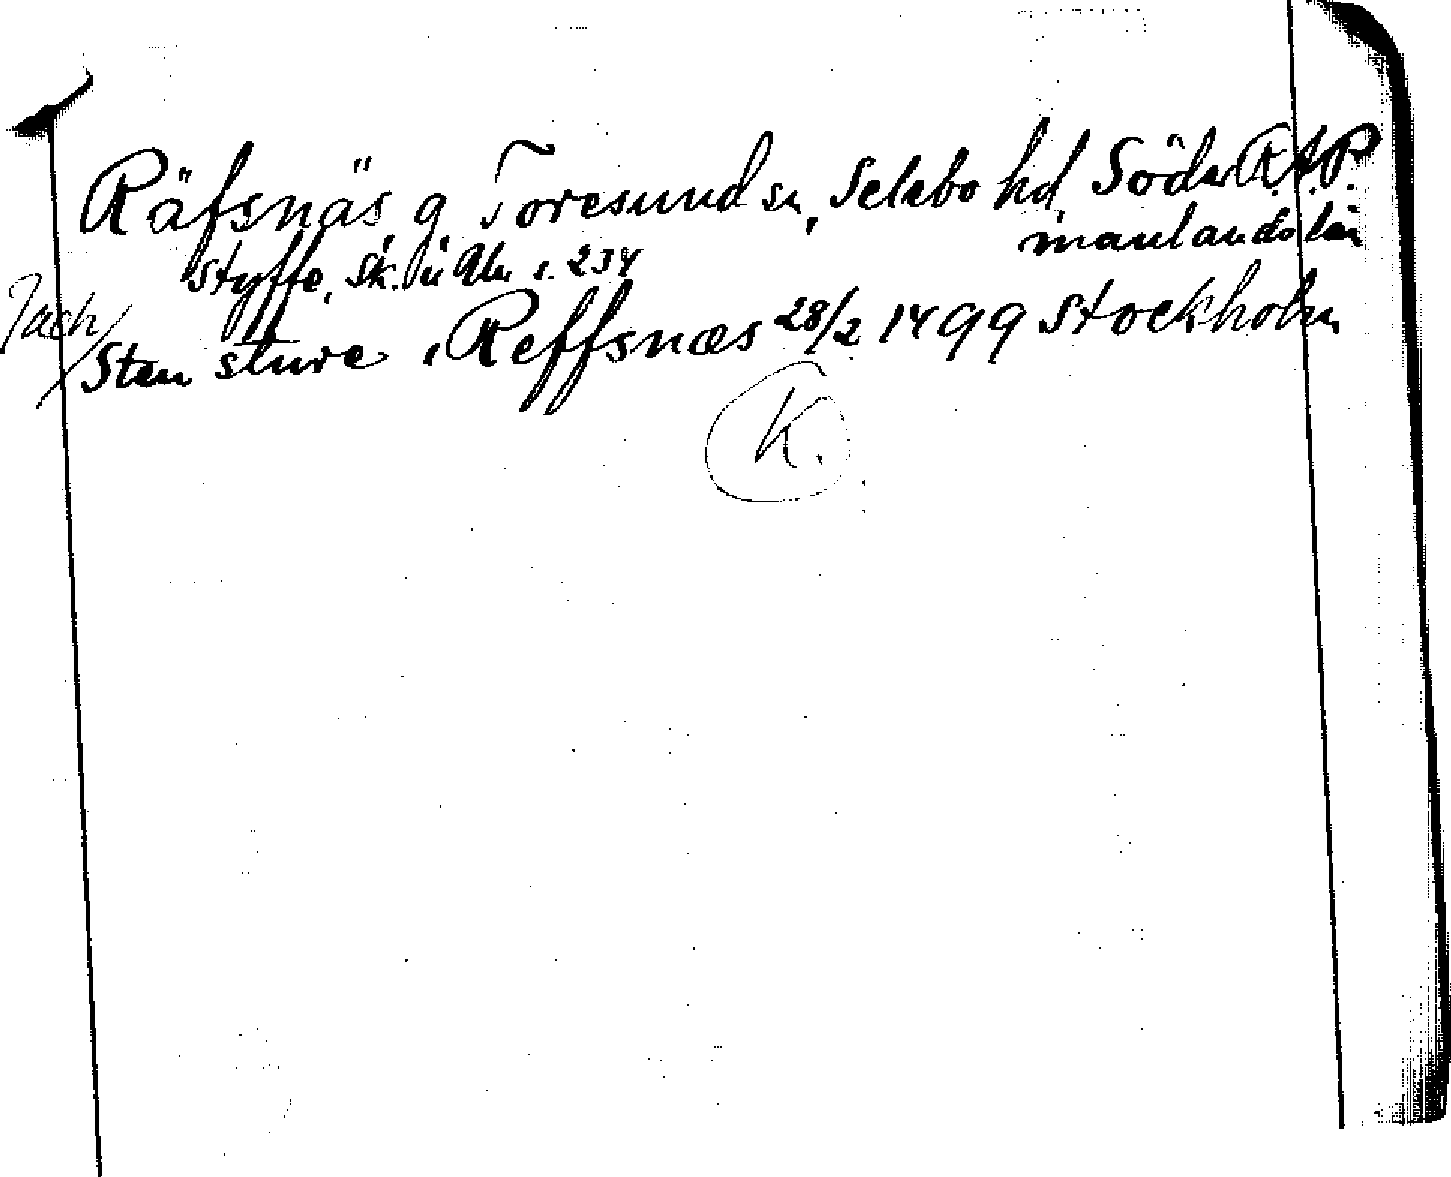 Räfsnäs, g. Toresund sn, Selebo hd Söder R.A.P.
manlands län
Styffe, Sk. u Un s. 234
Jach
Sten Sture, Reffsnæs 28/2 1499 Stockholm
K.